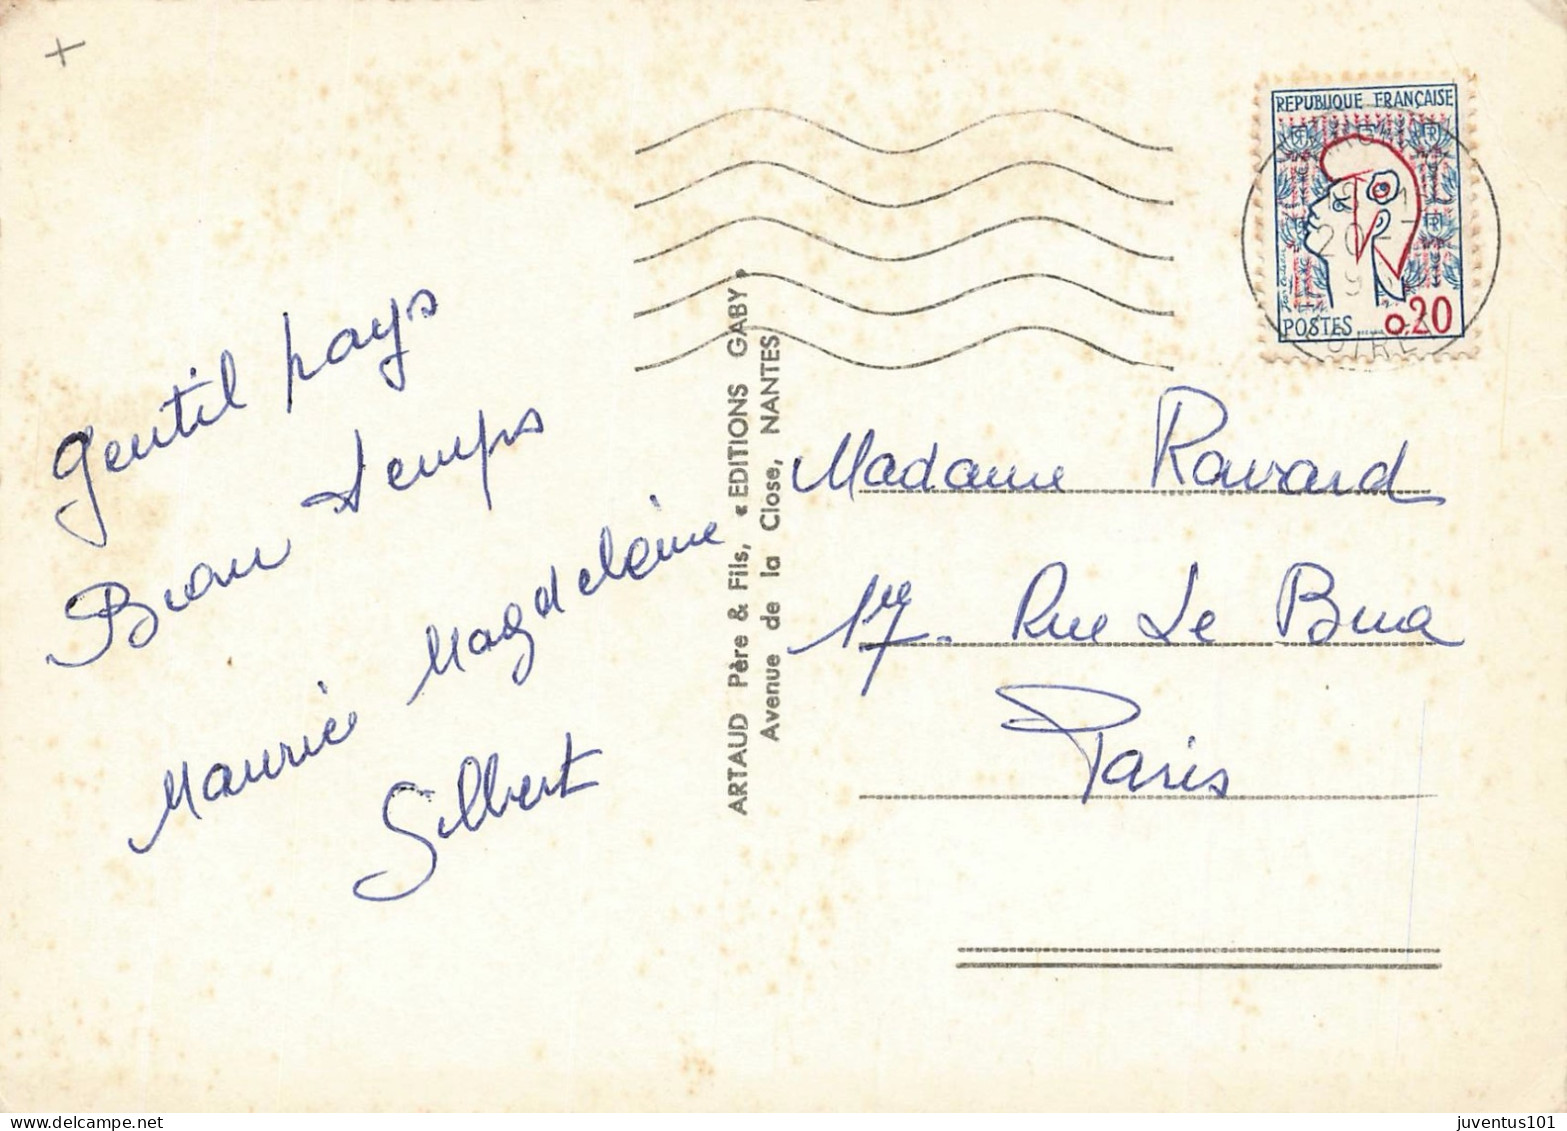 Gentil pays
Beau temps
Maurice Magdeleine
Gilbert
ARTAUD Père & Fils, « EDITIONS GABY »
Avenue de la Close, NANTES
REPUBLIQUE FRANÇAISE
POSTES 0,20
Madame Ravard
17 Rue Le Bua
Paris
delcampe.net
juventus101